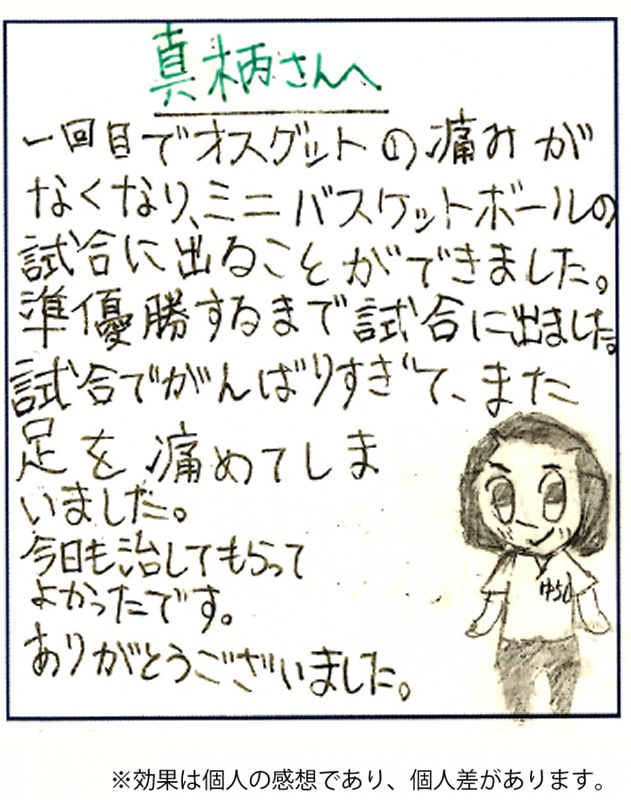 真柄さんへ
一回目でオスグットの痛みが
なくなり、ミニバスケットボールの
試合に出ることができました。
準優勝するまで試合に出ました。
試合でがんばりすぎて、また
足を痛めてしま
いました。
今日も治してもらって
よかったです。
ありがとうございました。
ゆらし
※効果は個人の感想であり、個人差があります。